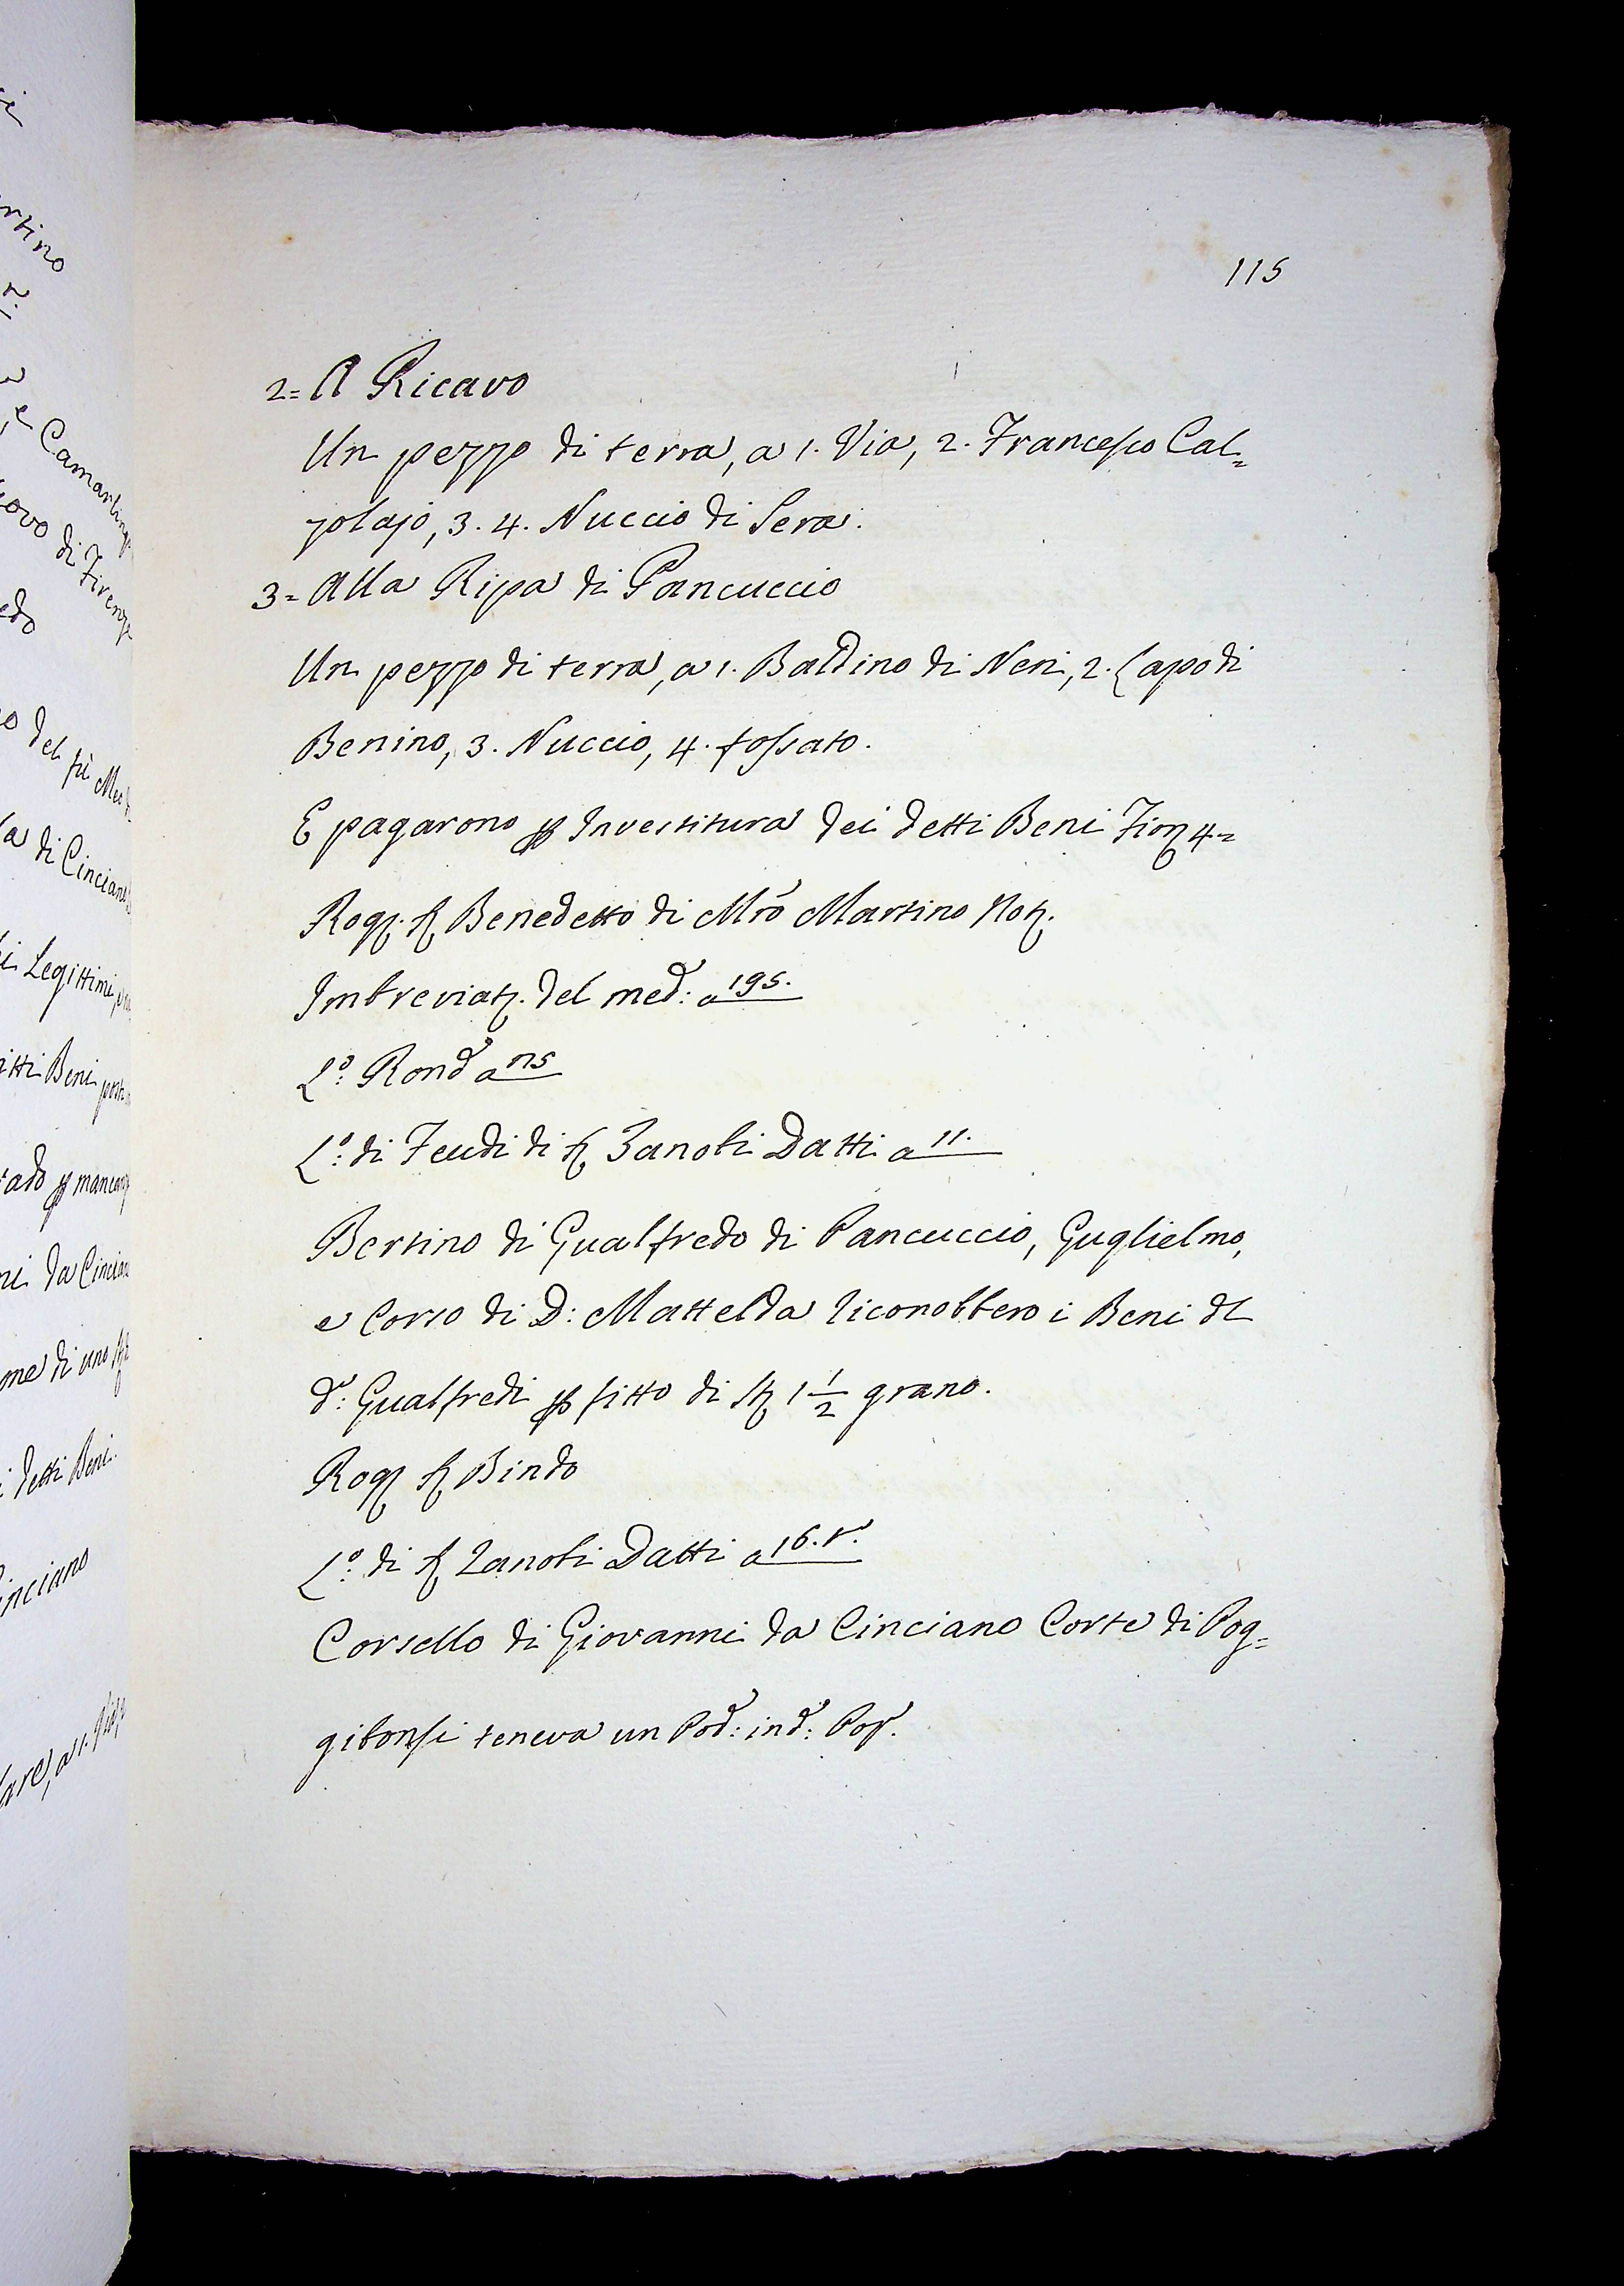 115
2= A Ricavo
Un pezzo di terra, a 1. Via, 2. Francesco Cal=
zolajo, 3. 4. Nuccio di Sera.
3= Alla Ripa di Pancuccio
Un pezzo di terra, a 1. Baldino di Neri, 2. Lapo di
Benino, 3. Nuccio, 4. fossato.
E pagarono p Investitura dei detti Beni Fior 4=
Rog. S Benedetto di Mro Martino Not.
Imbreviat. del med: a 195.
Lo: Rond a
Lo: di Feudi di S Zanobi Datti a 11.
Bertino di Gualfredo di Pancuccio, Guglielmo,
e Corso di D: Mattelda riconobbero i Beni dl
d: Gualfredi p fitto di St 1 1/2 grano.
Rog S Bindo
Lo: di S Zanobi Datti a 16.
Corsello di Giovanni da Cinciano Corte di Pog=
gibonsi teneva un Pod: in d: Pop.